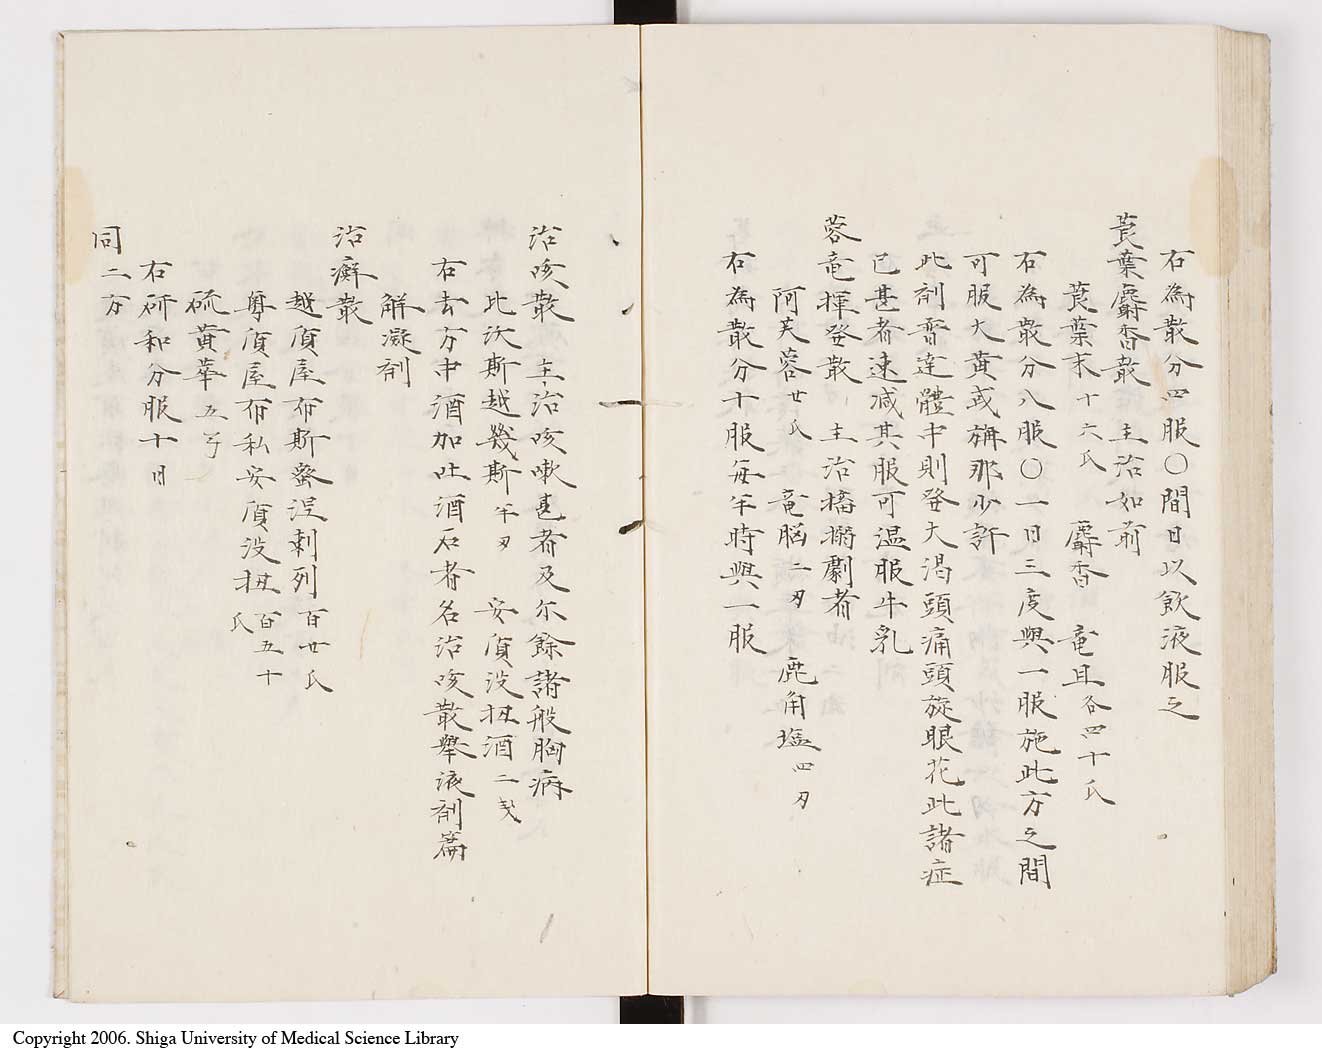 右為散分四服〇間日以飲液服之
莨葉麝香散 主治如前
莨葉末十六氏 麝香 竜且各四十氏
右為散分八服〇一日三度與一服施此方之間
可服大黄或旃那少許
此剤香達體中則發大渇頭痛頭旋眼花此諸症
已甚者速減其服可温服牛乳
蓉竜揮發散 主治搐搦劇者
阿芙蓉廿氏 竜脳二刄 鹿角塩四刄
右為散分十服每半時與一服
治咳散 主治咳嗽甚者及尓餘諸般胸病
比沃斯越幾斯半刄 安質没扭酒二戔
右去方中酒加吐酒石者名治咳散舉液剤篇
解凝剤
治癬散
越質屋布斯蜜浧刺列百廿氏
尊質屋布私安質没扭百五十氏
硫黄華五
右研和分服十日
同二方
Copyright 2006. Shiga University of Medical Science Library